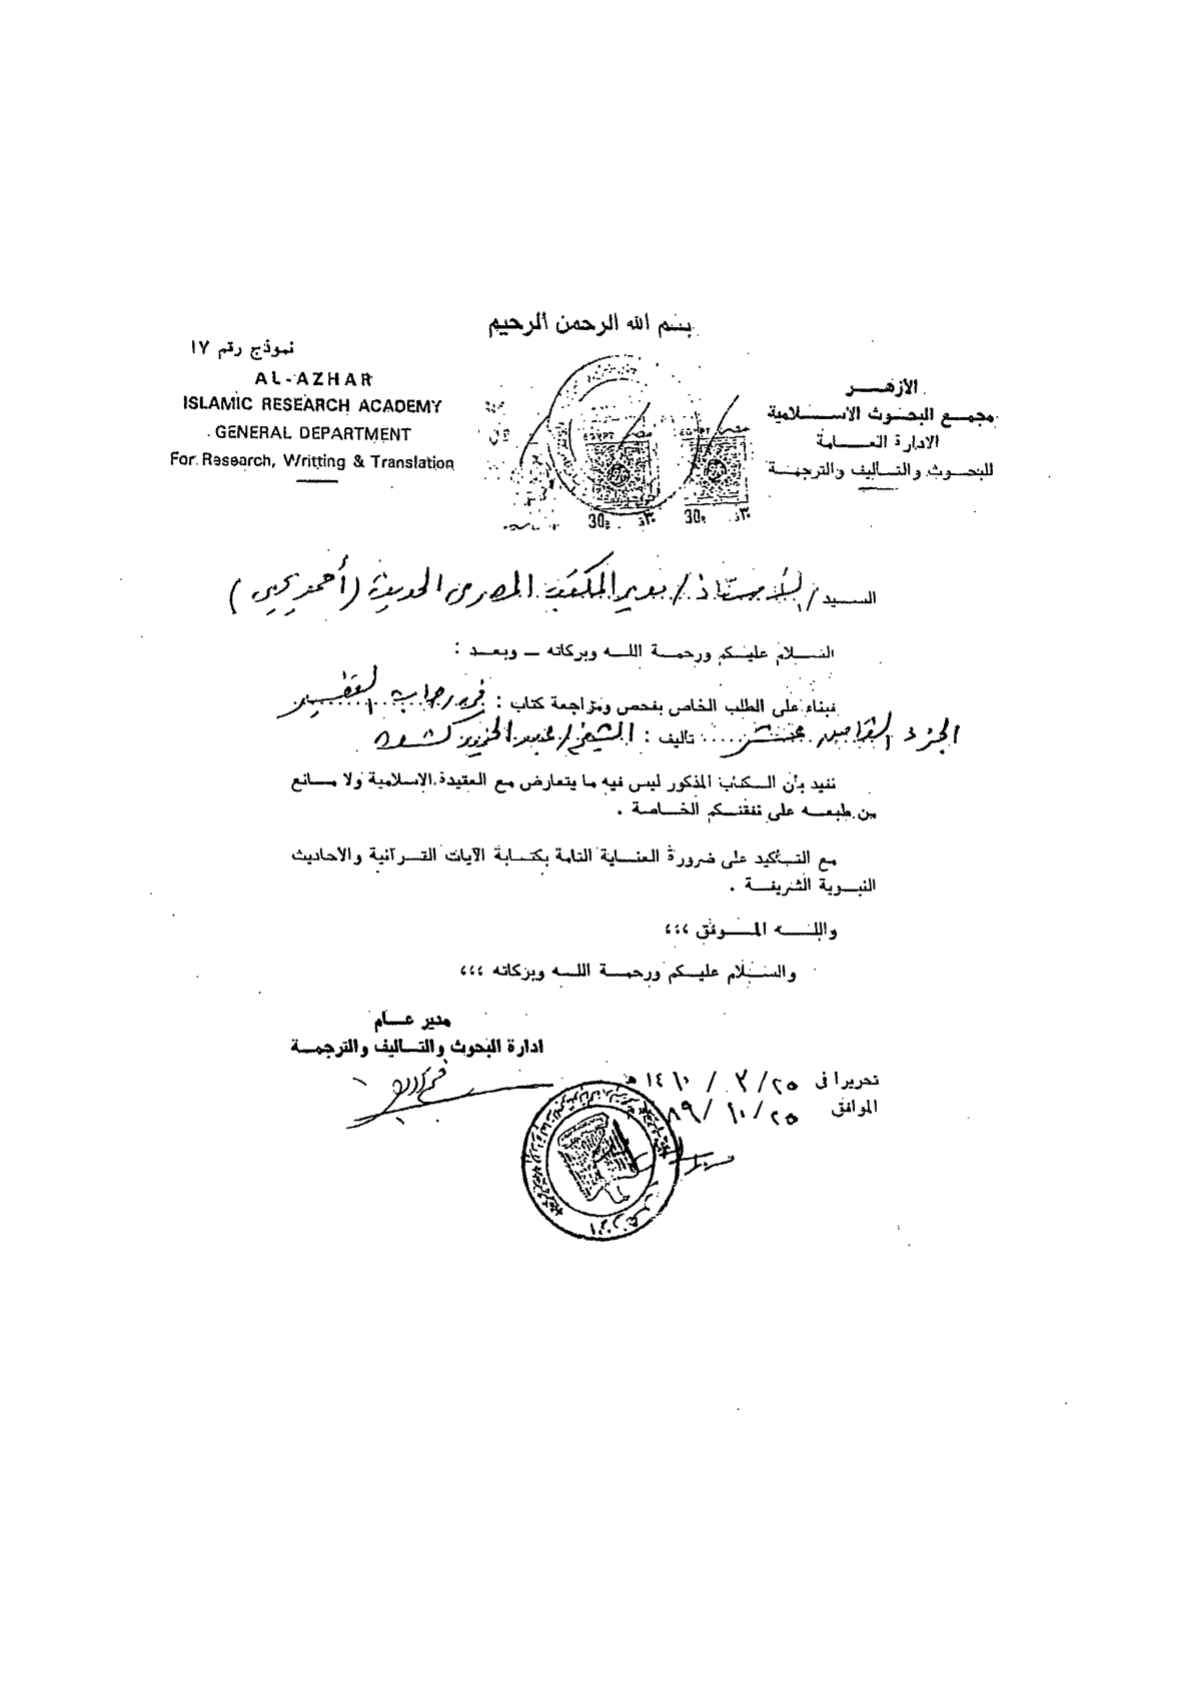 بسم الله الرحمن الرحيم
نموذج رقم ١٧
AL-AZHAR
ISLAMIC RESEARCH ACADEMY
GENERAL DEPARTMENT
For Research, Writting & Translation
الأزهـــر
مجمـع البحـوث الاسـلامية
الادارة العـامة
للبحـوث والتـأليف والترجمـة
مصر EGYPT
30 ٣٠
30 ٣٠
السـيد / الأستاذ / مدير المكتب المصرى الحديث (أحمد يحيى)
السـلام عليـكم ورحمـة اللـه وبركاته ــ وبعـد :
فبناء على الطلب الخاص بفحص ومراجعة كتاب : فى رحاب التفسير
الجزء الثامن عشر تأليف : الشيخ / عبد الحميد كشك
نفيد بأن الـكتاب المذكور ليس فيه ما يتعارض مع العقيدة الإسلامية ولا مـانع
من طبعـه على نفقتـكم الخـاصة .
مع التـأكيد على ضرورة العنـاية التامة بكتـابة الآيات القـرآنية والأحاديث
النبـوية الشريفـة .
واللـه المـوفق ،،،
والسـلام عليـكم ورحمـة اللـه وبركاته ،،،
مدير عـام
ادارة البحوث والتـأليف والترجمـة
تحريرا فى ٢٥ / ٣ / ١٤١٠ هـ
الموافق ٢٥ / ١٠ / ٨٩